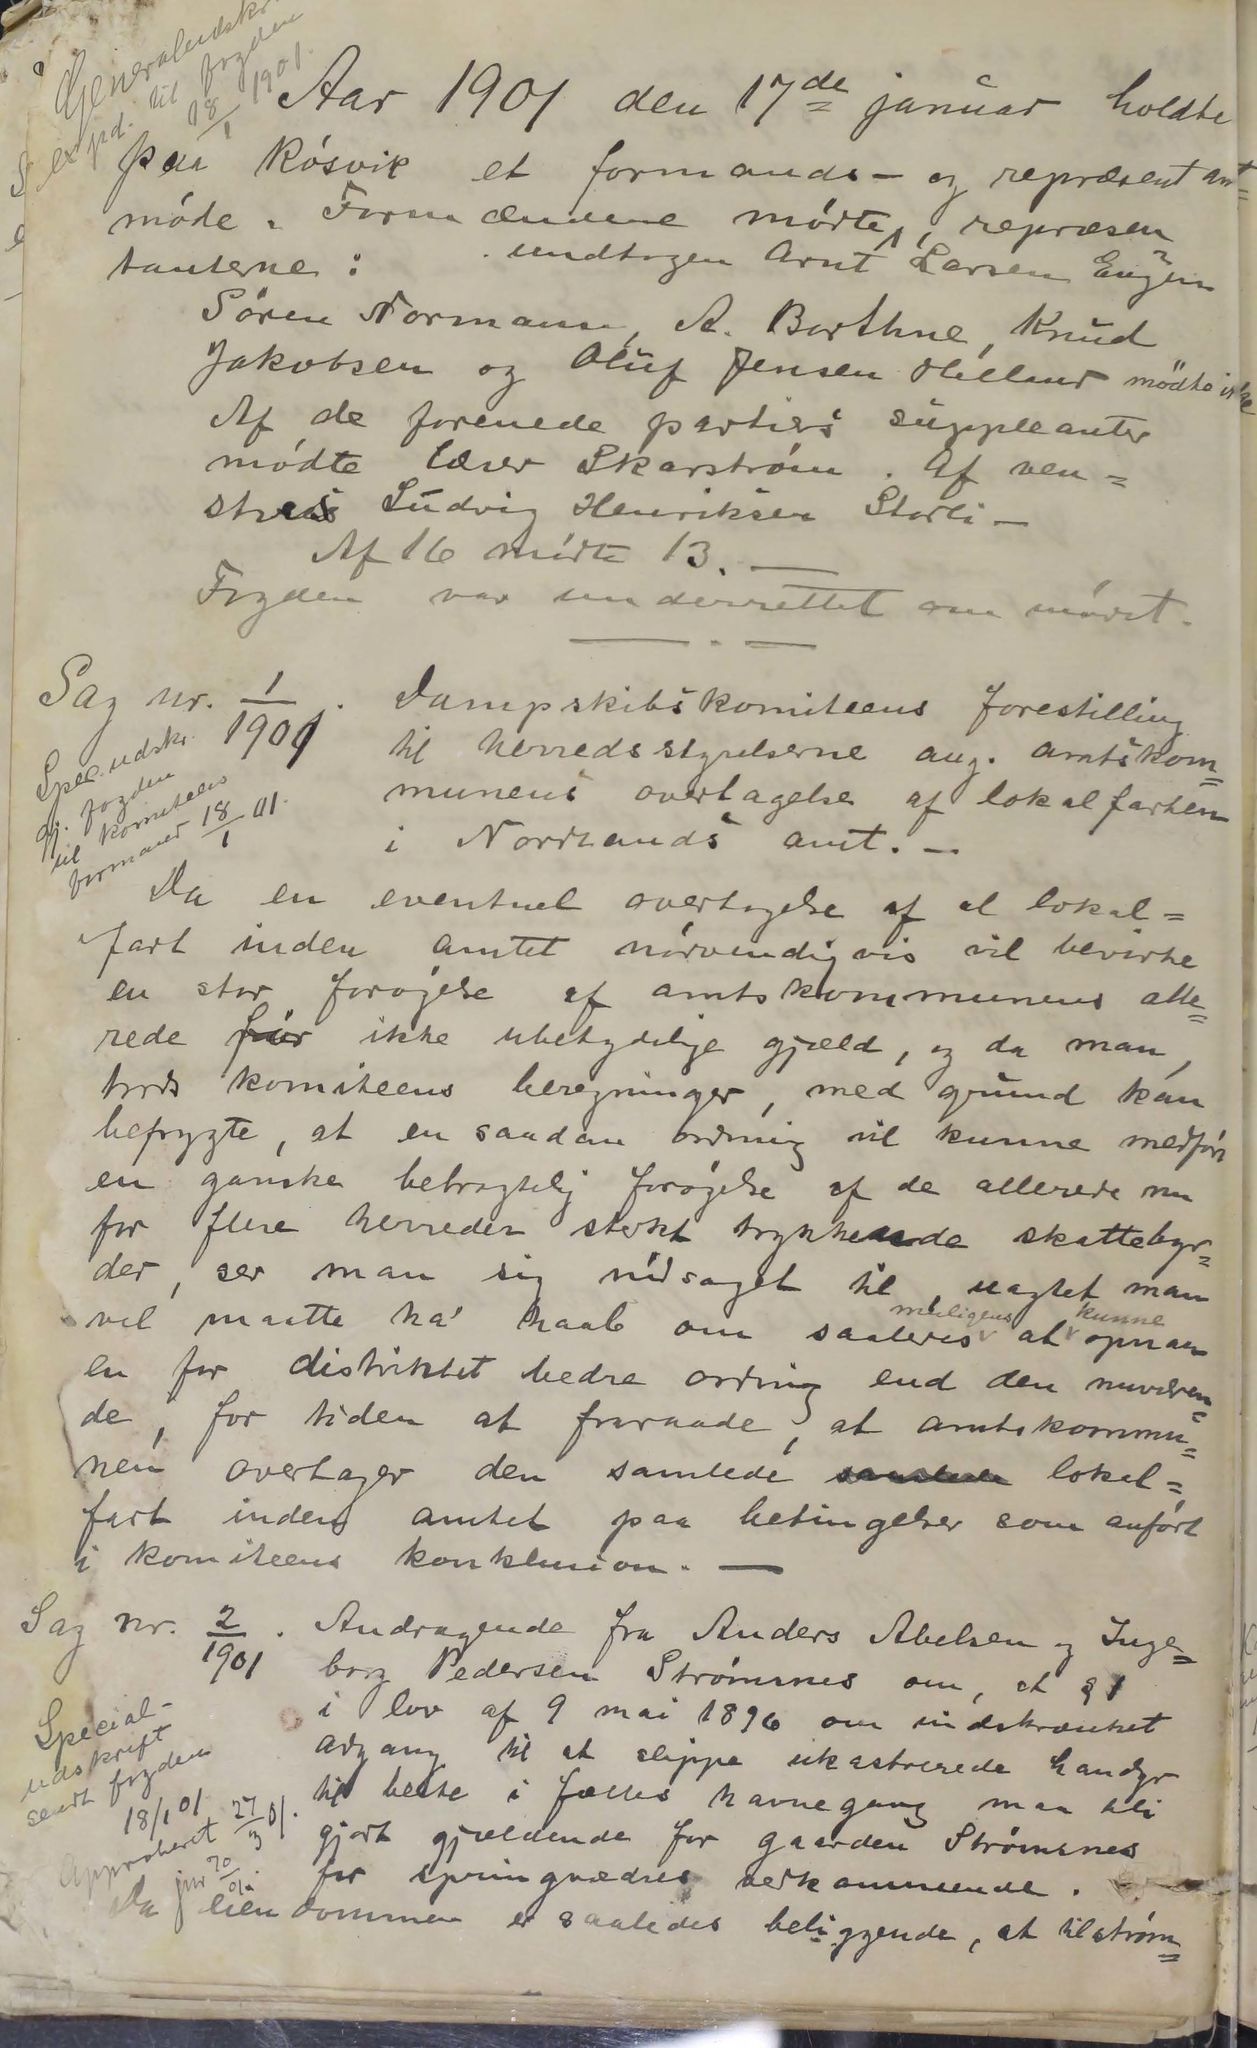 Generaludskr.
expd. til fogden
18/1 1901.
Aar 1901 den 17de januar holdte
paa Røsvik et formands- og repræsentant=
møde. Formændene mødte, repræsen
tanterne: undtagen Arnt Larsen Engen
Søren Normann, A. Borthne, Knud
Jakobsen og Oluf Jensen Helland mødte ikke
Af de forenede partiers suppleanter
mødte lærer Skarstrøm. Af ven=
stres Ludvig Henriksen Storli –
Af 16 mødte 13. —
Fogden var underrettet om mødet.
Sag nr. 1/1901. Dampskibskomiteens forestilling
til herredsstyrelserne ang. amtskom=
munens overtagelse af lokalfarten
i Nordlands amt. –
Spec. udskr.
gj. fogden
til komiteens
formand 18/1 01.
Da en eventuel overtagelse af al lokal=
fart inden amtet nødvendigvis vil bevirke
en stor forøgelse af amtskommunens alle=
rede før ikke ubetydelige gjæld, og da man,
trods komiteens beregninger, med grund kan
befrygte, at en saadan ordning vil kunne medføre
en ganske betragtelig forøgelse af de allerede nu
for flere herreder sterkt trykkende skattebyr=
der, ser man sig nødsaget til, uagtet man
vel maatte ha' haab om saaledes muligens at kunne opnaa
en for distriktet bedre ordning end den nuværen=
de, for tiden at fraraade, at amtskommu=
nen overtager den samlede samlede lokal=
fart inden amtet paa betingelser som anført
i komiteens konklusion. —
Sag nr. 2/1901. Andragende fra Anders Abelsen og Inge=
borg Pedersen Strømsnes om, at § 1
i lov af 9 mai 1896 om indskrænket
adgang til at slippe ukastrerede handyr
til beite i fælles havnegang maa bli
gjort gjældende for gaarden Strømsnes
for springvædres vedkommende.
Special-
udskrift
sendt fogden
18/1 01
Approberet 27/3 01.
Da eiendommen er saaledes beliggende, at tilstrøm=